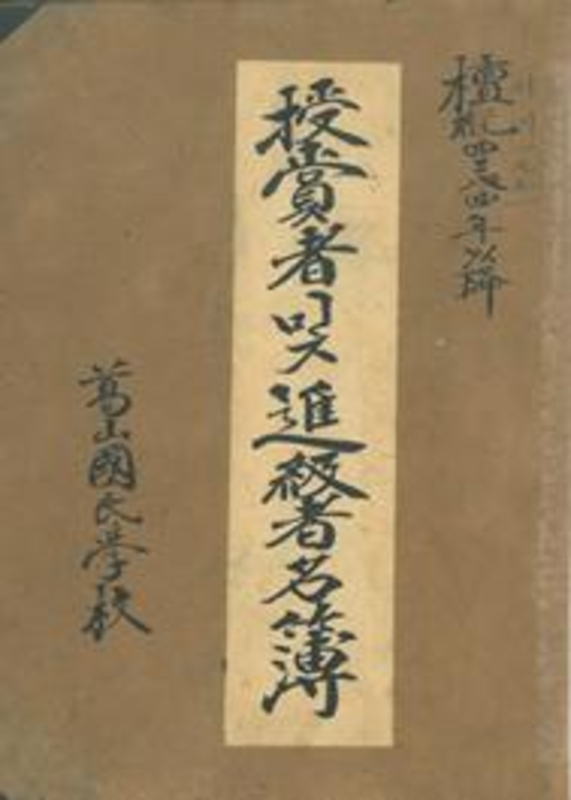 檀紀四二八四年以降
授賞者 및 進級者名簿
山國民學校